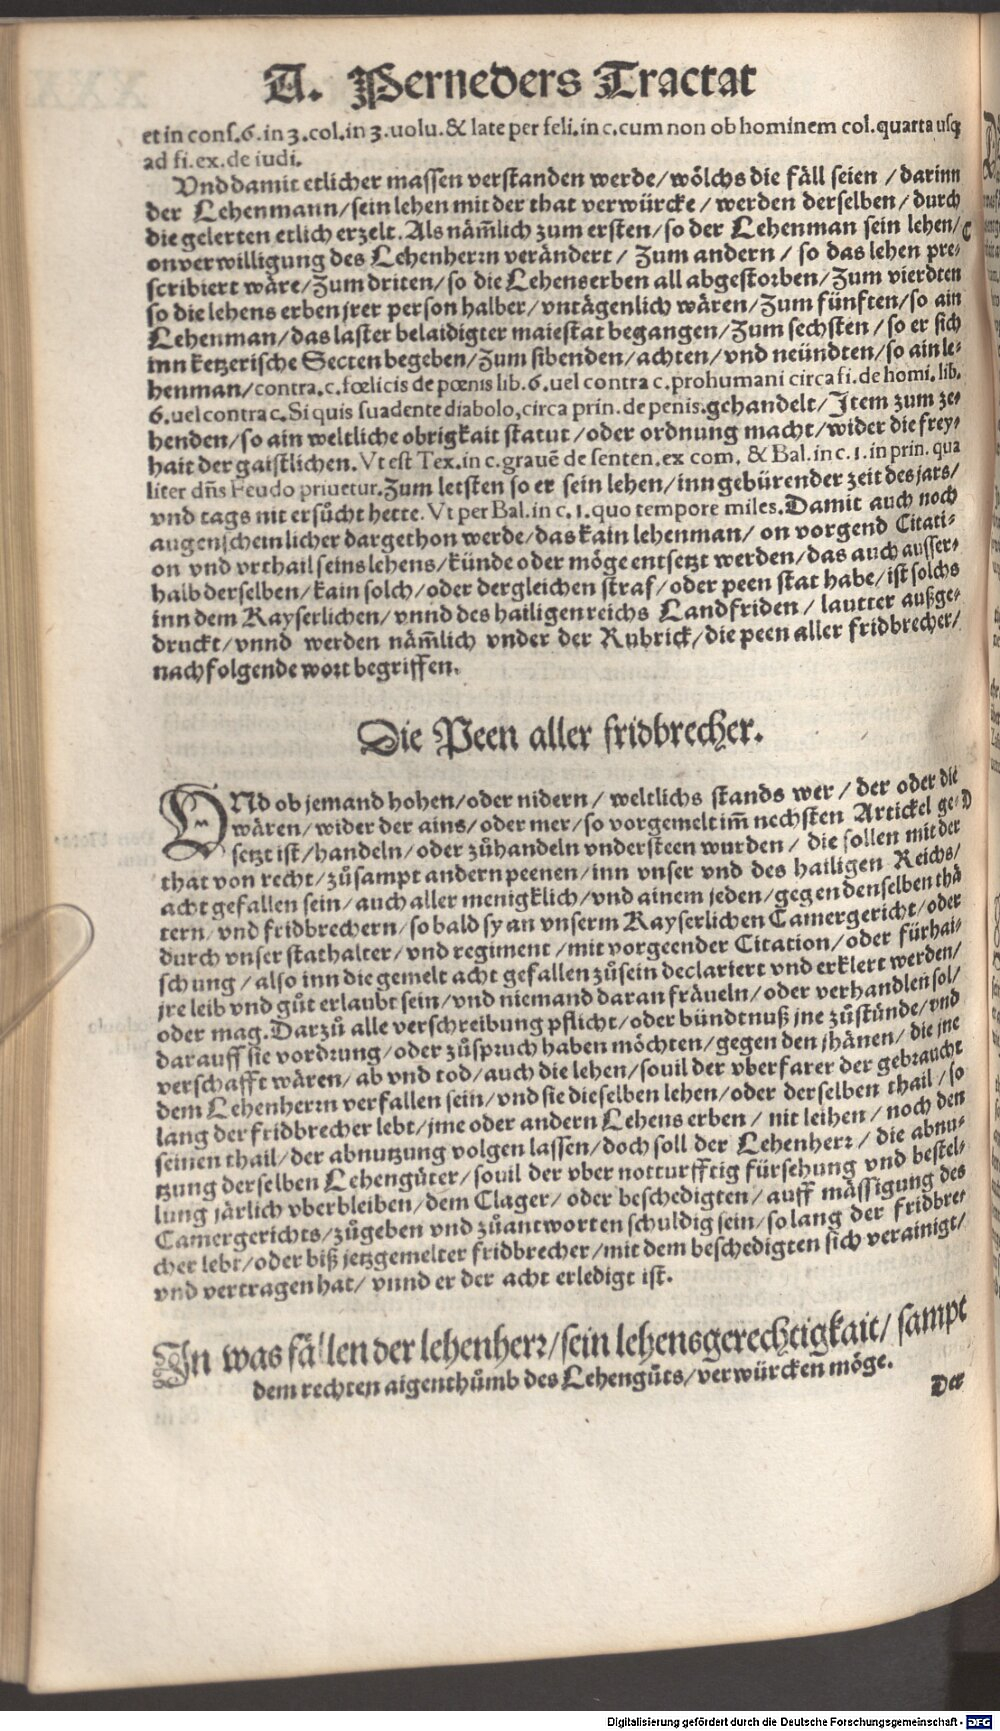 A. Perneders Tractat
et in conſ. 6. in 3. col. in 3. uolu. & late per feli. in c. cum non ob hominem col. quarta uſqꝫ
ad fi. ex. de iudi.
Vnd damit etlicher maſſen verſtanden werde/ wölchs die fäll ſeien / darinn
der Lehenmann/ ſein lehen mit der that verwürcke / werden derſelben / durch
die gelerten etlich erzelt. Als näm̃lich zum erſten/ ſo der Lehenman ſein lehen/ C
on verwilligung des Lehenherrn verändert / Zum andern / ſo das lehen pre-
ſcribiert wäre/ Zum driten/ ſo die Lehenserben all abgeſtorben/ Zum vierdten
ſo die lehens erben jrer perſon halber/ vnträgenlich wären/ Zum fünften/ ſo ain
Lehenman/ das laſter belaidigter maieſtat begangen/ Zum ſechſten / ſo er ſich
inn ketzeriſche Secten begeben/ Zum ſibenden/ achten/ vnd neündten/ ſo ain le-
henman/ contra. c. fœlicis de pœnis lib. 6. uel contra c. prohumani circa fi. de homi. lib.
6. uel contra c. Si quis ſuadente diabolo, circa prin. de penis. gehandelt/ Item zum ze-
henden/ ſo ain weltliche obrigkait ſtatut / oder ordnung macht/ wider die frey-
hait der gaiſtlichen. Vt eſt Tex. in c. grauē de ſenten. ex com. & Bal. in c. 1. in prin. qua
liter dñs Feudo priuetur. Zum letſten ſo er ſein lehen/ inn gebürender zeit des jars/
vnd tags nit erſůcht hette. Vt per Bal. in c. 1. quo tempore miles. Damit auch noch
augenſcheinlicher dargethon werde/ das kain lehenman/ on vorgend Citati-
on vnd vrthail ſeins lehens/ künde oder möge entſetzt werden/ das auch auſſer-
halb derſelben/ kain ſolch/ oder dergleichen ſtraf / oder peen ſtat habe/ iſt ſolchs
inn dem Kayſerlichen/ vnnd des hailigen reichs Landfriden / lautter außge-
druckt/ vnnd werden näm̃lich vnder der Rubrick/ die peen aller fridbrecher/
nachfolgende wort begriffen.
Die Peen aller fridbrecher.
VNd ob jemand hohen/ oder nidern / weltlichs ſtands wer / der oder die
wären/ wider der ains/ oder mer/ ſo vorgemelt im̃ nechſten Artickel ge- D
ſetzt iſt/ handeln/ oder zůhandeln vnderſteen wurden / die ſollen mit der
that von recht/ zůſampt andern peenen/ inn vnſer vnd des hailigen Reichs/
acht gefallen ſein/ auch aller menigklich/ vnd ainem jeden/ gegen denſelben thä
tern/ vnd fridbrechern/ ſo bald ſy an vnſerm Kayſerlichen Camergericht/ oder
durch vnſer ſtathalter/ vnd regiment / mit vorgeender Citation/ oder fürhai-
ſchung / alſo inn die gemelt acht gefallen zůſein declariert vnd erklert werden/
jre leib vnd gůt erlaubt ſein/ vnd niemand daran fräueln/ oder verhandlen ſol/
oder mag. Darzů alle verſchreibung pflicht/ oder bündtnuß jne zůſtünde/ vnd
darauff ſie vordrung/ oder zůſpruch haben möchten/ gegen den jhänen/ die jne
verſchafft wären/ ab vnd tod/ auch die lehen/ ſouil der vberfarer der gebraucht
dem Lehenherrn verfallen ſein/ vnd ſie dieſelben lehen/ oder derſelben thail / ſo
lang der fridbrecher lebt/ jme oder andern Lehens erben / nit leihen / noch den
ſeinen thail/ der abnutzung volgen laſſen/ doch ſoll der Lehenherr / die abnu-
tzung derſelben Lehengüter/ ſouil der vber notturfftig fürſehung vnd beſtel-
lung järlich vberbleiben/ dem Clager/ oder beſchedigten / auff mäſſigung des
Camergerichts/ zůgeben vnd zůantworten ſchuldig ſein/ ſo lang der fridbre-
cher lebt/ oder biß jetzgemelter fridbrecher/ mit dem beſchedigten ſich verainigt/
vnd vertragen hat/ vnnd er der acht erledigt iſt.
In was fällen der lehenherr/ ſein lehensgerechtigkait/ ſampt
dem rechten aigenthůmb des Lehengůts/ verwürcken möge.
Der
Digitalisierung gefördert durch die Deutsche Forschungsgemeinschaft - DFG